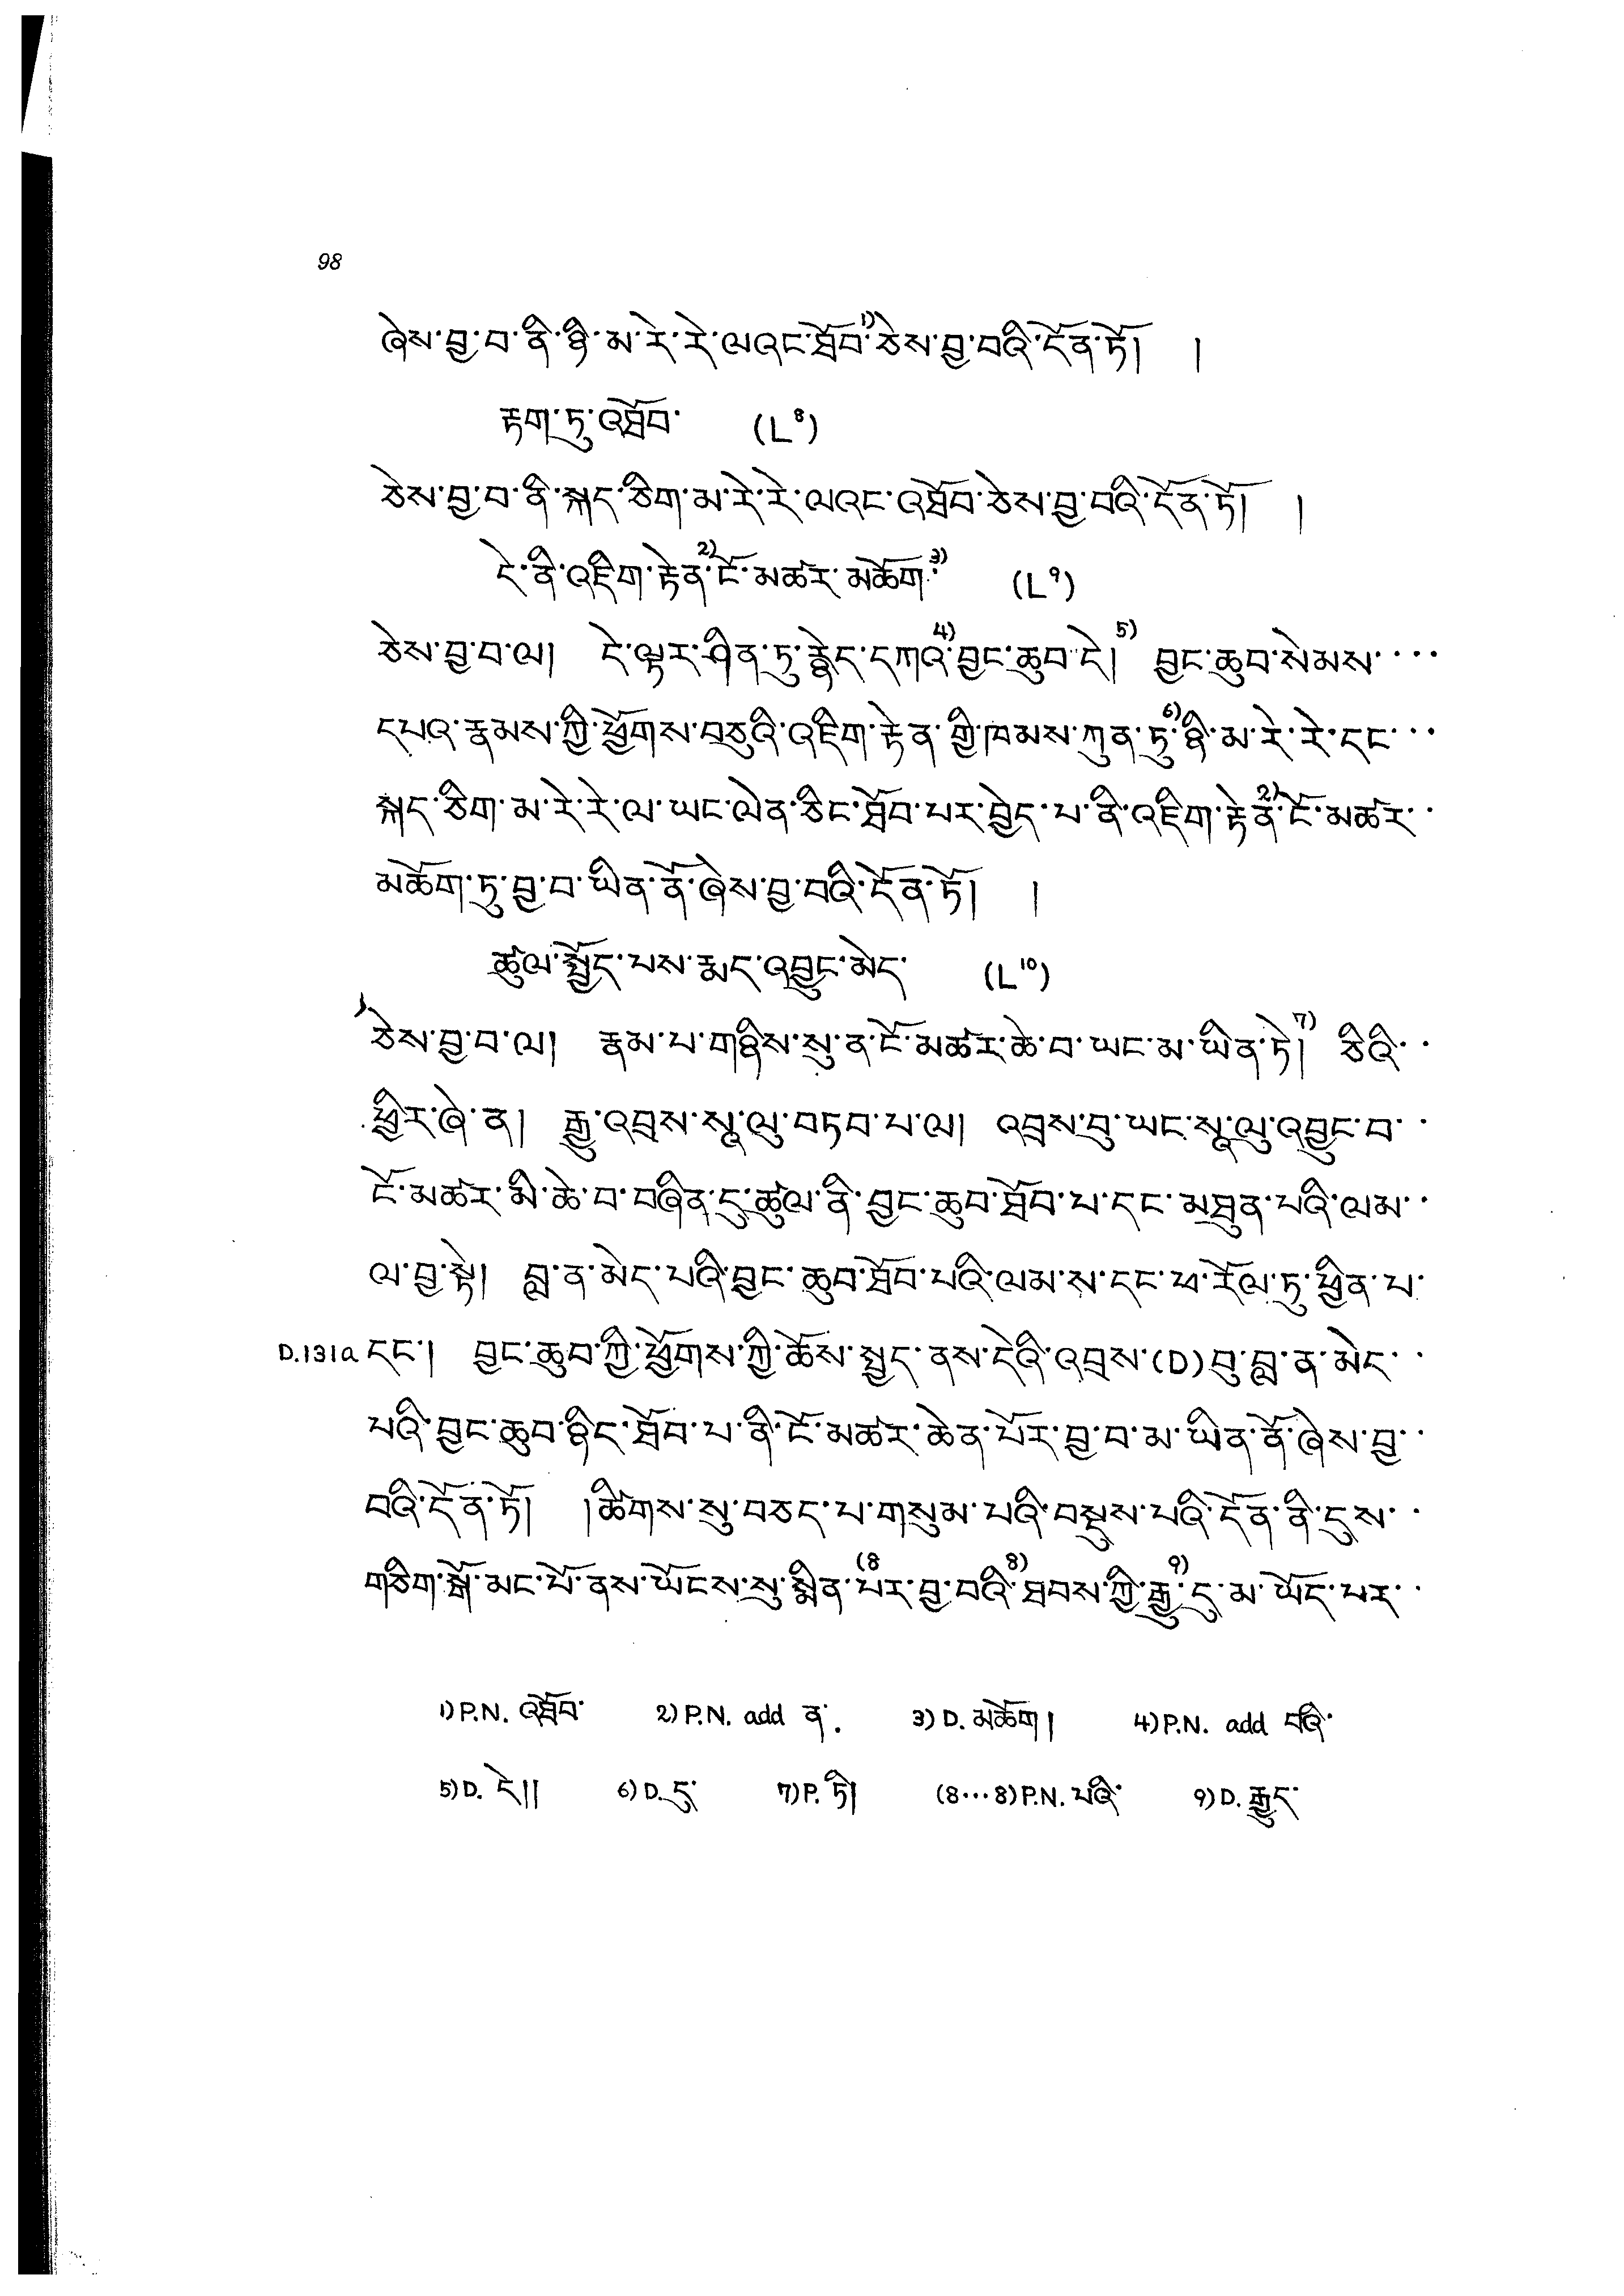 98
ཞེས་བྱ་བ་ནི་ཉི་མ་རེ་རེ་ལའང་ཐོབ་1)ཅེས་བྱ་བའི་དོན་ཏོ། །
རྟག་ཏུ་འཐོབ་ (L8)
ཅེས་བྱ་བ་ནི་སྐད་ཅིག་མ་རེ་རེ་ལའང་འཐོབ་ཅེས་བྱ་བའི་དོན་ཏོ། །
དེ་ནི་འཇིག་རྟེན་2)ངོ་མཚར་མཆོག་3) (L9)
ཅེས་བྱ་བ་ལ། དེ་ལྟར་ཤིན་ཏུ་རྙེད་དཀའ་4)བྱང་ཆུབ་དེ།5) བྱང་ཆུབ་སེམས་····
དཔའ་རྣམས་ཀྱི་ཕྱོགས་བཅུའི་འཇིག་རྟེན་གྱི་ཁམས་ཀུན་ཏུ་6)ཉི་མ་རེ་རེ་དང་···
སྐད་ཅིག་མ་རེ་རེ་ལ་ཡང་ལེན་ཅིང་ཐོབ་པར་བྱེད་པ་ནི་འཇིག་རྟེན་2)ངོ་མཚར་··
མཆོག་ཏུ་བྱ་བ་ཡིན་ནོ་ཞེས་བྱ་བའི་དོན་ཏོ། །
ཚུལ་སྤྱོད་པས་རྨད་འབྱུང་མེད་ (L10)
ཅེས་བྱ་བ་ལ། རྣམ་པ་གཉིས་སུ་ན་ངོ་མཚར་ཆེ་བ་ཡང་མ་ཡིན་ཏེ།7) ཅིའི་··
ཕྱིར་ཞེ་ན། རྒྱུ་འབྲས་སཱ་ལུ་བཏབ་པ་ལ། འབྲས་བུ་ཡང་སཱ་ལུ་འབྱུང་བ་··
ངོ་མཚར་མི་ཆེ་བ་བཞིན་དུ་ཚུལ་ནི་བྱང་ཆུབ་ཐོབ་པ་དང་མཐུན་པའི་ལམ་··
ལ་བྱ་སྟེ། བླ་ན་མེད་པའི་བྱང་ཆུབ་ཐོབ་པའི་ལམ་ས་དང་ཕ་རོལ་ཏུ་ཕྱིན་པ་
D.131a དང་། བྱང་ཆུབ་ཀྱི་ཕྱོགས་ཀྱི་ཆོས་སྤྱད་ནས་དེའི་འབྲས་(D)བུ་བླ་ན་མེད་··
པའི་བྱང་ཆུབ་ཉིད་ཐོབ་པ་ནི་ངོ་མཚར་ཆེན་པོར་བྱ་བ་མ་ཡིན་ནོ་ཞེས་བྱ་··
བའི་དོན་ཏོ། །ཚིགས་སུ་བཅད་པ་གསུམ་པའི་བསྡུས་པའི་དོན་ནི་དུས་··
གཅིག་སྒོ་མང་པོ་ནས་ཡོངས་སུ་སྨིན་(8པར་བྱ་བའི་8)ཐབས་ཀྱི་རྒྱུ་9)དུ་མ་ཡོད་པར་··
1)P.N. འཐོབ་ 2)P.N. add ན་. 3)D. མཆོག། 4)P.N. add བའི་
5)D. དེ།། 6)D. དུ་ 7)P. ཏི། (8···8)P.N. པའི་ 9)D. རྒྱུད་